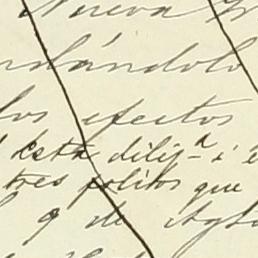 Nueva
ndándolo
los efectos
esta dilig.ª i
tres politos que
q de Agto